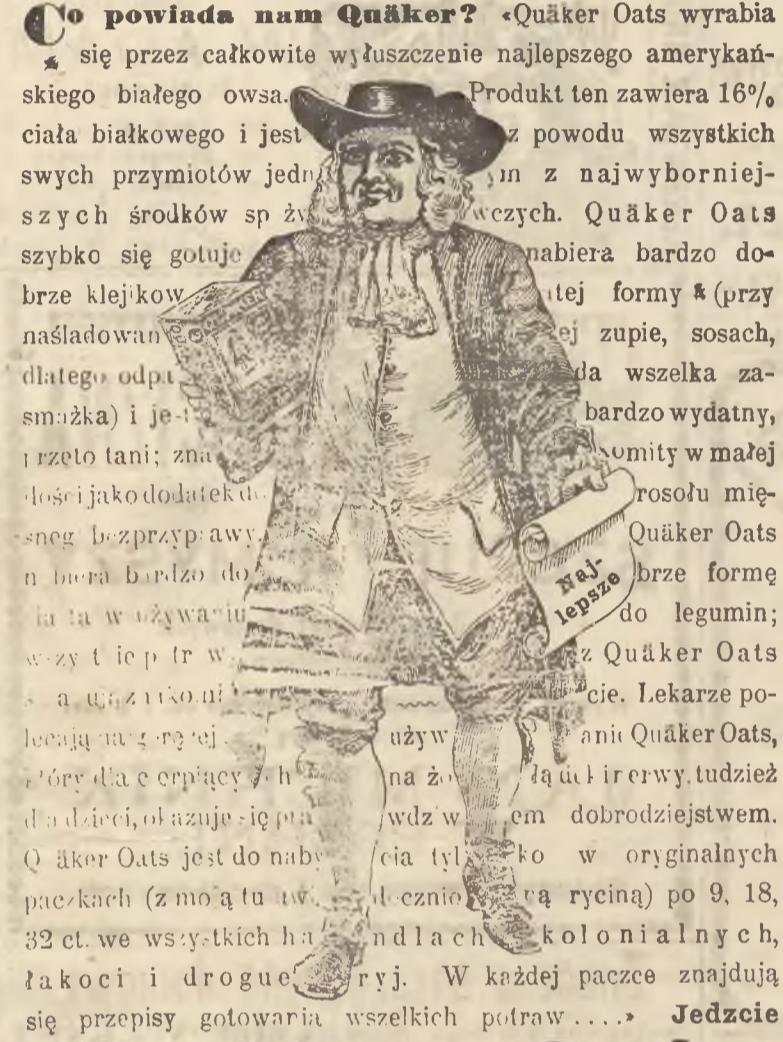 Co powiada nam Quäker? «Quäker Oats wyrabia
się przez całkowite wyłuszczenie najlepszego amerykań-
skiego białego owsa. Produkt ten zawiera 16%
ciała białkowego i jest z powodu wszystkich
swych przymiotów jednym z najwyborniej-
szych środków sp ży wczych. Quäker Oats
szybko się gotuje nabiera bardzo do-
brze klejkow tej formy & (przy
naśladowan ej zupie, sosach,
dlatego odpa da wszelka za-
smażka) i jest bardzo wydatny,
przeto tani; zna komity w małej
ilości jako dodatek do rosołu mię-
sneg bez przyprawy. Quäker Oats
n biera bardzo do brze formę
w używaniu do legumin;
z Quäker Oats
cie. Lekarze po-
lecają używ anie Quäker Oats,
który dla cierpiących na żołądek i nerwy, tudzież
dla dzieci, okazuje się pra wdziw em dobrodziejstwem.
Q äker Oats jest do naby cia tyl ko w oryginalnych
paczkach (z moją tu uwi docznio ną ryciną) po 9, 18,
32 ct. we wszystkich ha ndlach kolonialnych,
łakoci i drogue ryj. W każdej paczce znajdują
się przepisy gotowania wszelkich potraw ....» Jedzcie
Naj-
lepsze